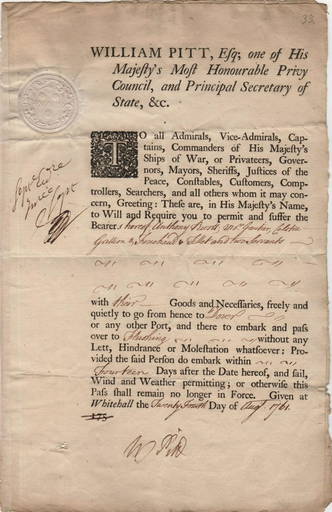 33.
WILLIAM PITT, Esq; one of His
Majesty's Most Honourable Privy
Council, and Principal Secretary of
State, &c.
TO all Admirals, Vice-Admirals, Cap-
tains, Commanders of His Majesty's
Ships of War, or Privateers, Gover-
nors, Mayors, Sheriffs, Justices of
the Peace, Constables, Customers, Comp-
trollers, Searchers, and all others whom it may con-
cern, Greeting: These are, in His Majesty's Name,
to Will and Require you to permit and suffer the
Bearers hereof Anthony
and two Servants
with their Goods and Necessaries, freely and
quietly to go from hence to Dover
or any other Port, and there to embark and pass
over to Flushing without any
Lett, Hindrance or Molestation whatsoever; Pro-
vided the said Person do embark within
Fourteen Days after the Date hereof, and sail,
Wind and Weather permitting; or otherwise this
Pass shall remain no longer in Force. Given at
Whitehall the Twenty Fourth Day of Augt 1761.
175
W Pitt